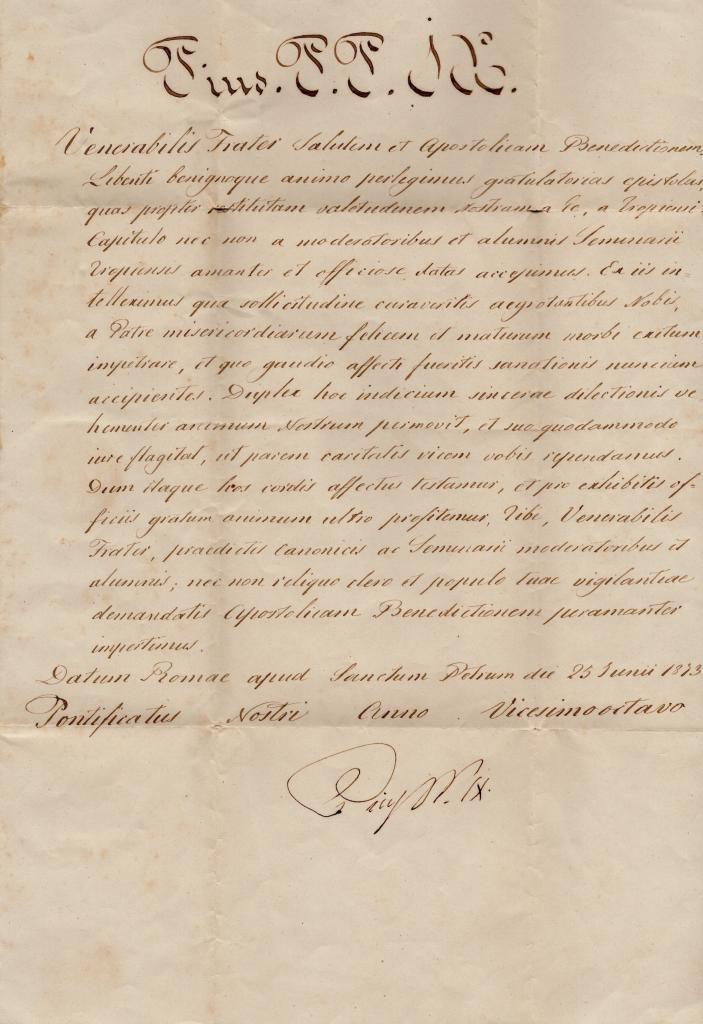 Pius. P.P. IX.
Venerabilis Frater Salutem et Apostolicam Benedictionem.
Libenti benignoque animo perlegimus gratulatorias epistolas,
quas propter restitutam valetudinem Nostram a Te, a Tropiensi
Capitulo nec non a moderatoribus et alumnis Seminarii
Tropiensis amanter et officiose datas accepimus. Ex iis in=
telleximus qua sollicitudine curaveritis aegrotantibus Nobis,
a Patre misericordiarum felicem et maturum morbi exitum
impetrare, et quo gaudio affecti fueritis sanationis nuncium
accipientes. Duplex hoc indicium sincerae dilectionis ve
hementer animum Nostrum permovit, et suo quodammodo
iure flagitat, ut parem caritatis vicem vobis rependamus.
Dum itaque hos cordis affectus testamur, et pro exhibitis of=
ficiis gratum animum ultro profitemur, Tibi, Venerabilis
Frater, praedictis Canonicis ac Seminarii moderatoribus et
alumnis; nec non reliquo clero et populo tuae vigilantiae
demandatis Apostolicam Benedictionem peramanter
impertimus.
Datum Romae apud Sanctum Petrum die 25 Junii 1873
Pontificatus Nostri Anno Vicesimooctavo
Pius PP. IX.